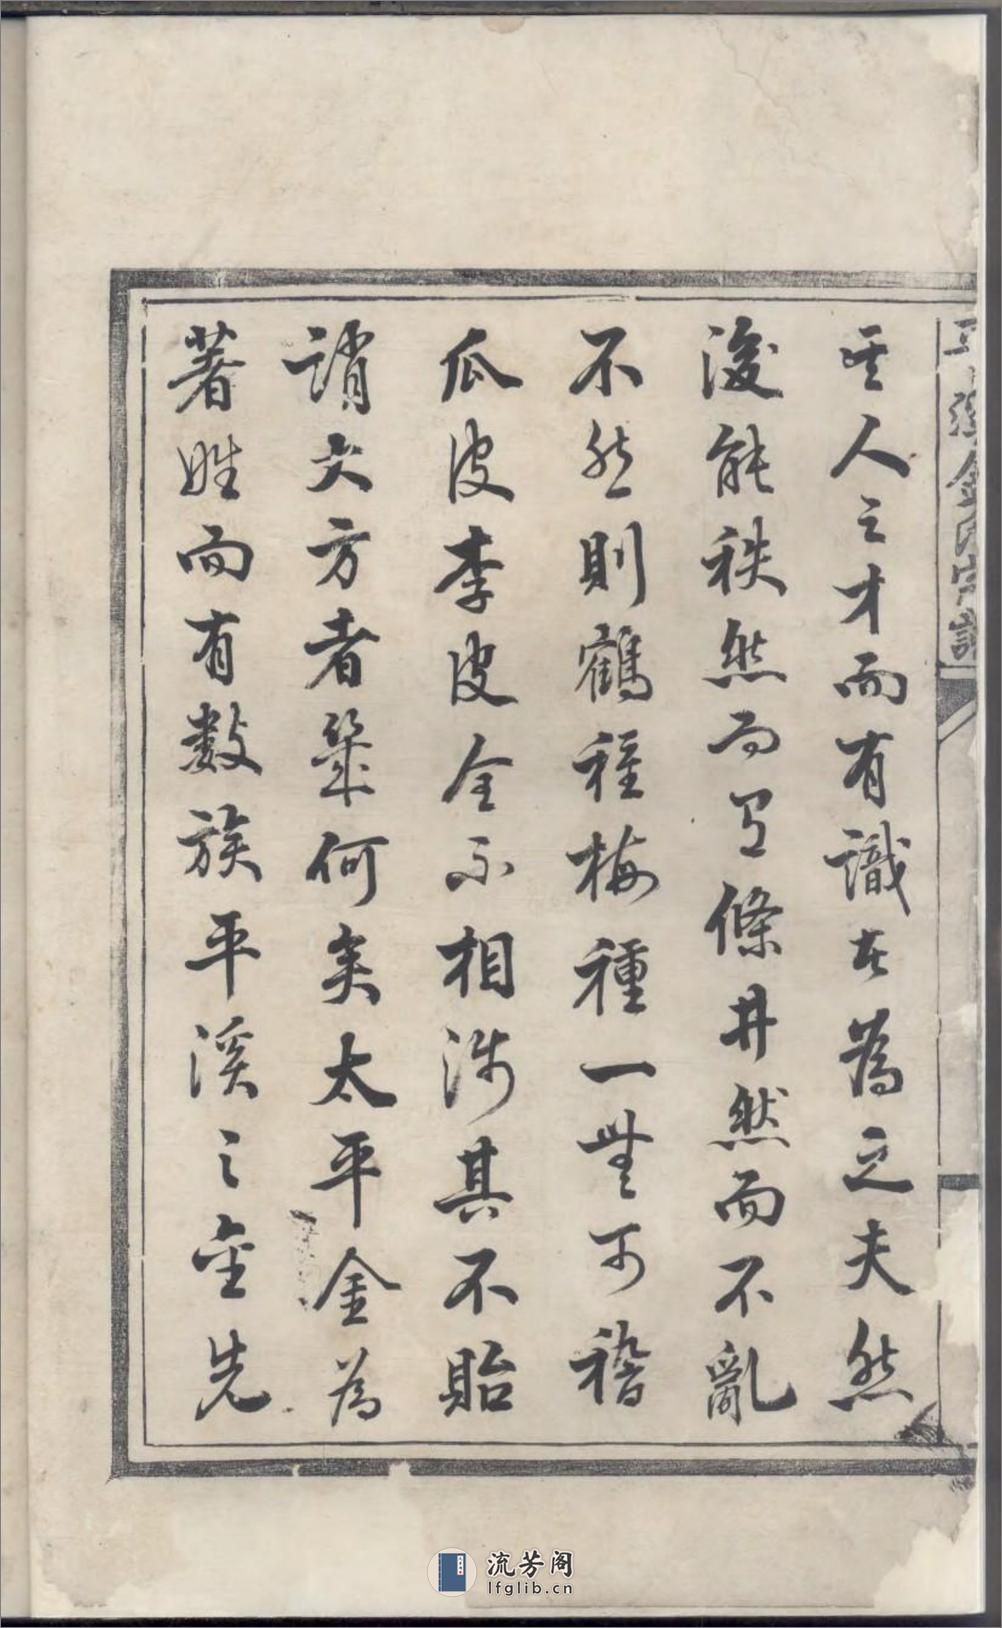 平溪金氏宗譜
其人之才而有識者為之夫然
後能秩然而有條井然而不亂
不然則鶴種梅種一無可稽
瓜皮李皮全不相涉其不貽
誚大方者幾何矣太平金為
著姓而有數族平溪之金先
流芳阁
lfglib.cn